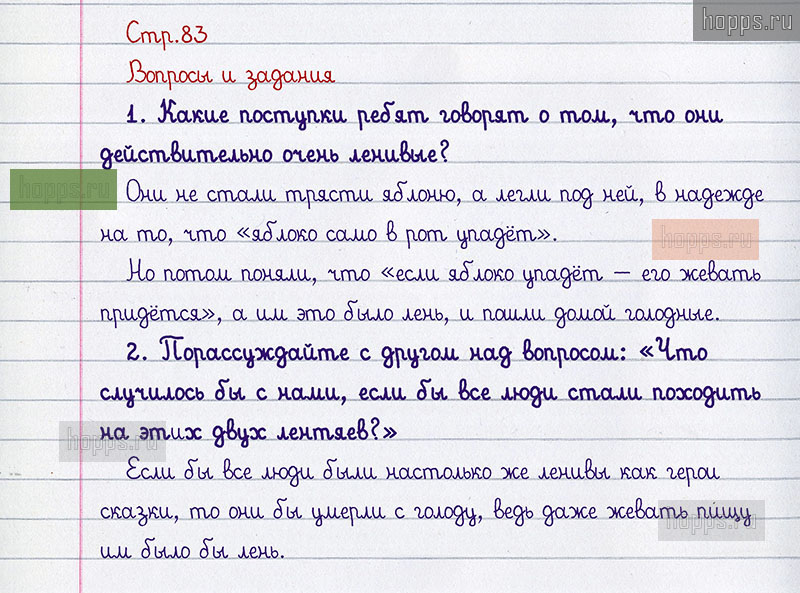 hopps.ru
Стр.83
Вопросы и задания
1. Какие поступки ребят говорят о том, что они
действительно очень ленивые?
hopps.ru
Они не стали трясти яблоню, а легли под ней, в надежде
на то, что «яблоко само в рот упадёт».
hopps.ru
Но потом поняли, что «если яблоко упадёт – его жевать
придётся», а им это было лень, и пошли домой голодные.
2. Порассуждайте с другом над вопросом: «Что
случилось бы с нами, если бы все люди стали походить
на этих двух лентяев?»
hopps.ru
Если бы все люди были настолько же ленивы как герои
сказки, то они бы умерли с голоду, ведь даже жевать пищу
hopps.ru
им было бы лень.